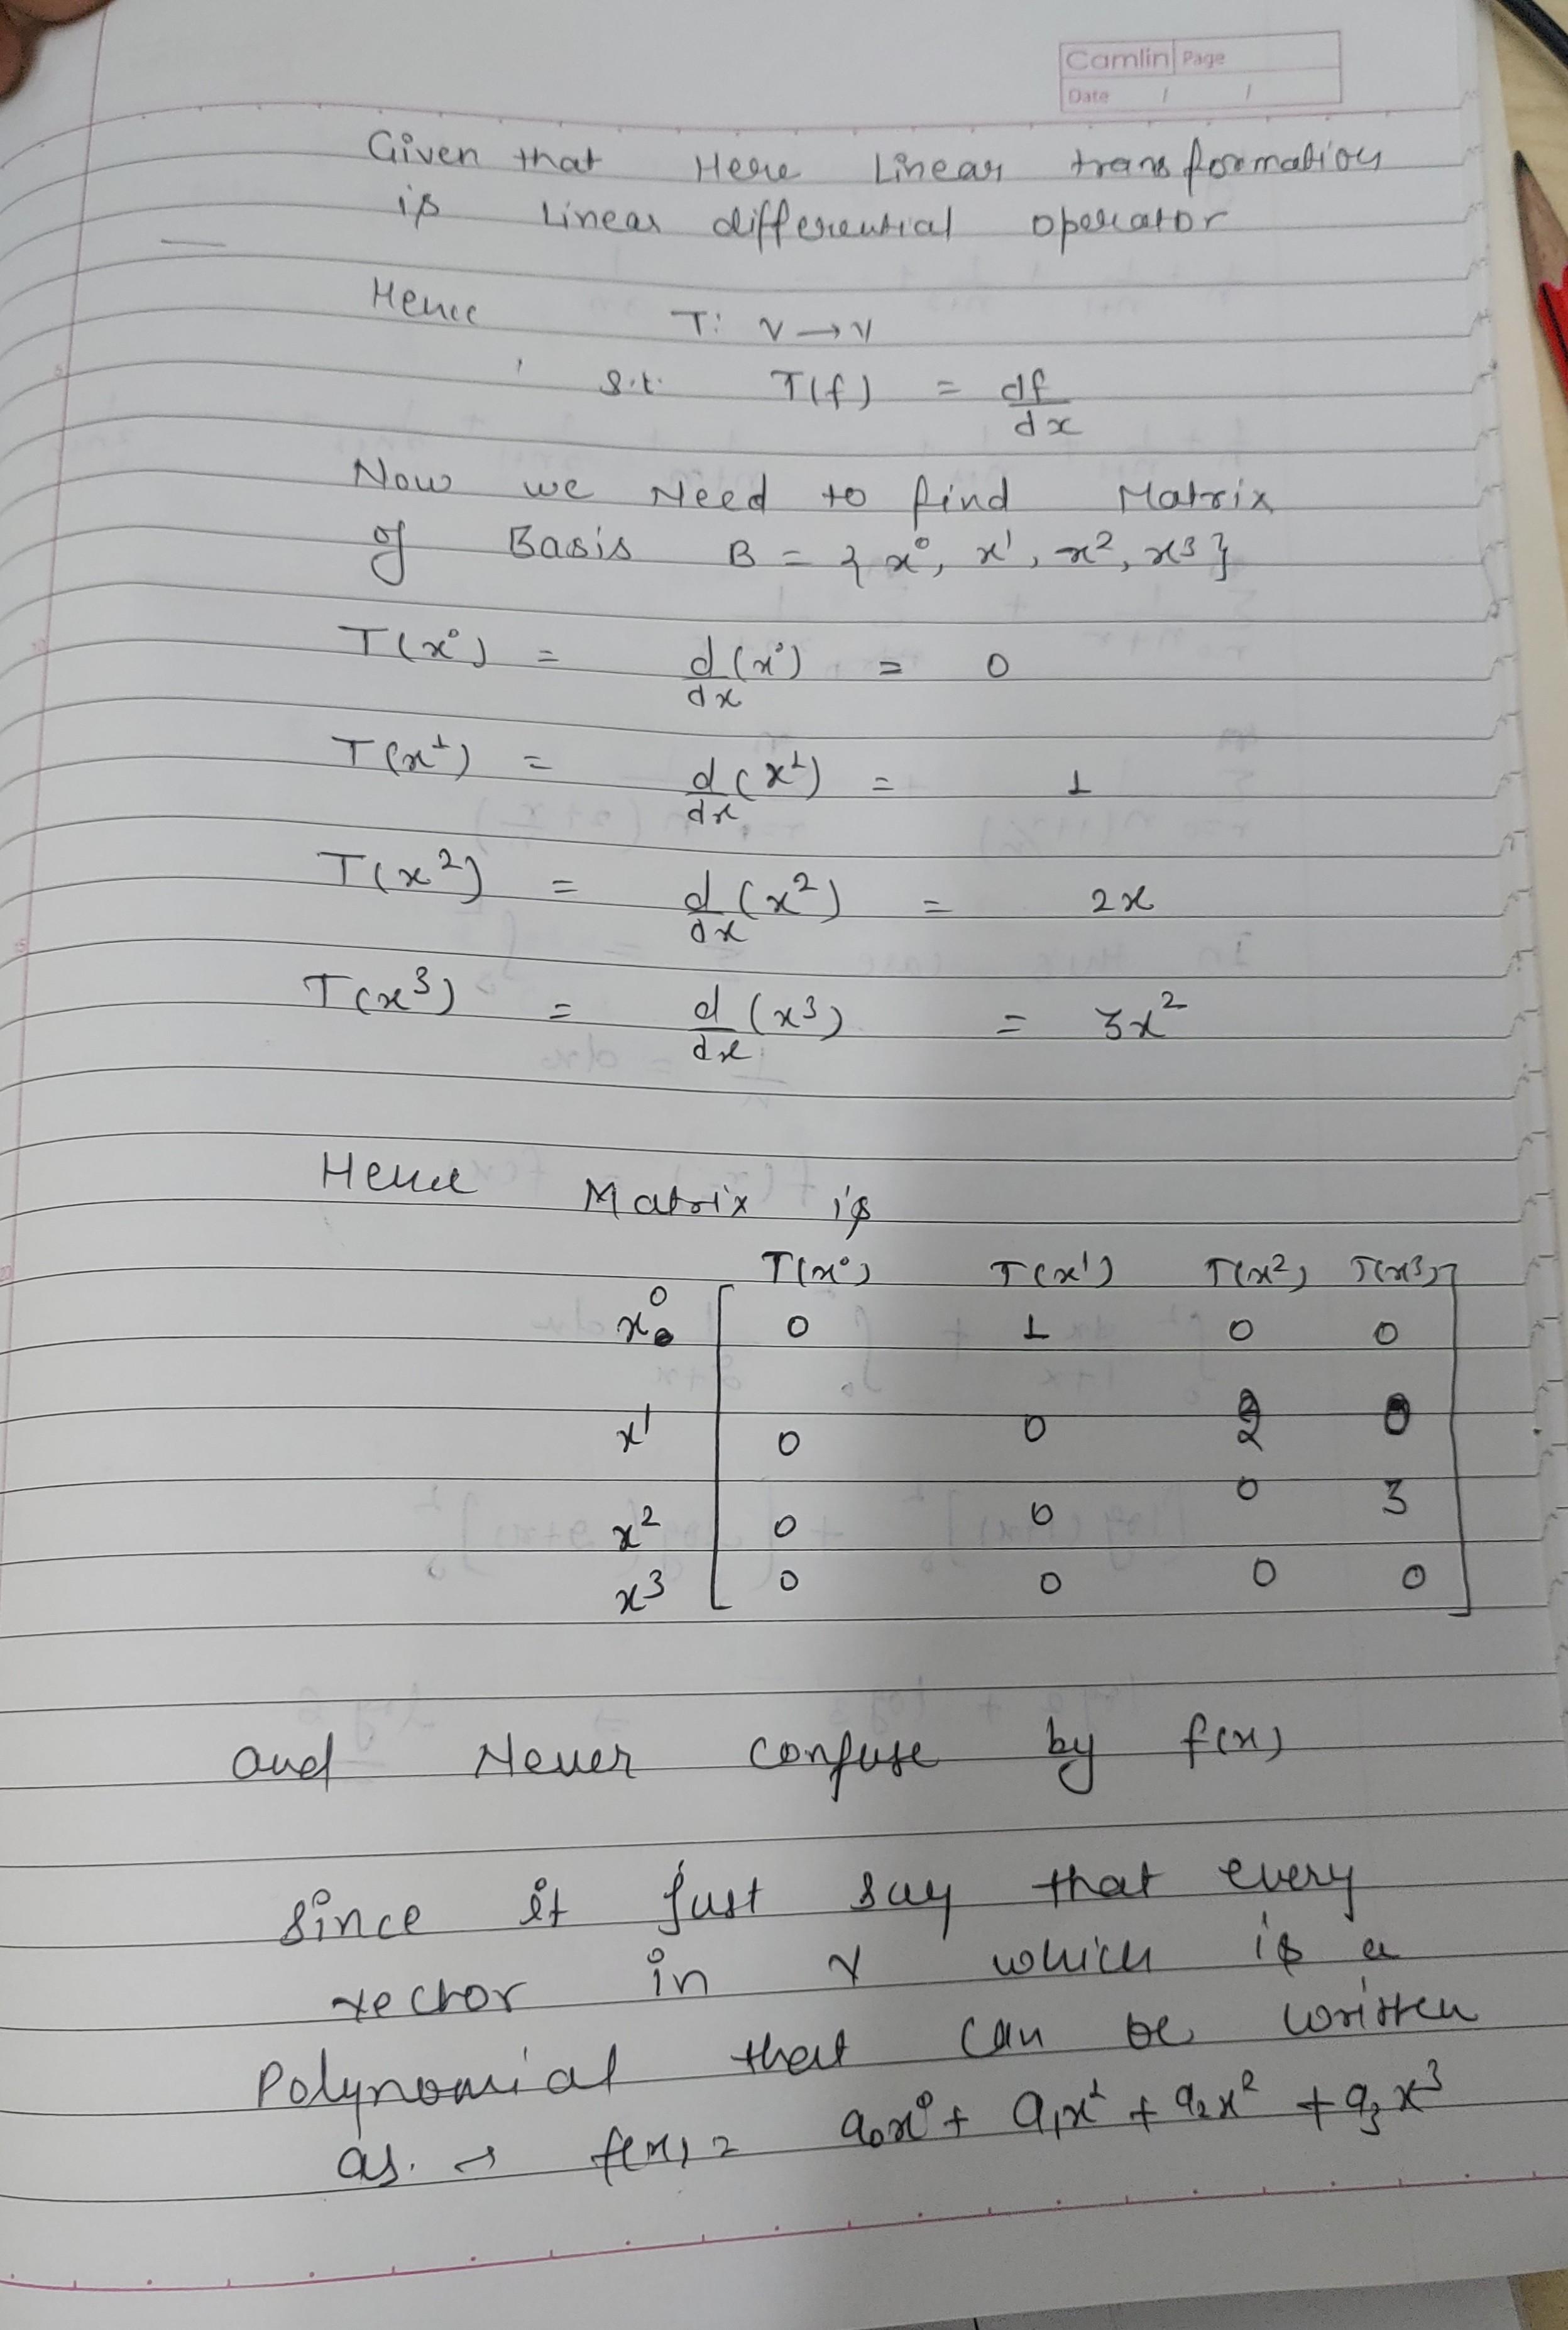 Camlin Page
Date / /
Given that Here Linear transformation
is Linear differential operator
Hence T: V → V
s.t. T(f) = df/dx
Now we Need to find Matrix
of Basis B = {x⁰, x¹, x², x³}
T(x⁰) = d/dx (x⁰) = 0
T(x¹) = d/dx (x¹) = 1
T(x²) = d/dx (x²) = 2x
T(x³) = d/dx (x³) = 3x²
Hence Matrix is
T(x⁰) T(x¹) T(x²) T(x³)
x⁰ [ 0 1 0 0
x¹ 0 0 2 0
x² 0 0 0 3
x³ 0 0 0 0 ]
and Never confuse by f(x)
since it just say that every
vector in V which is a
Polynomial that can be written
as. → f(x) = a₀x⁰ + a₁x¹ + a₂x² + a₃x³